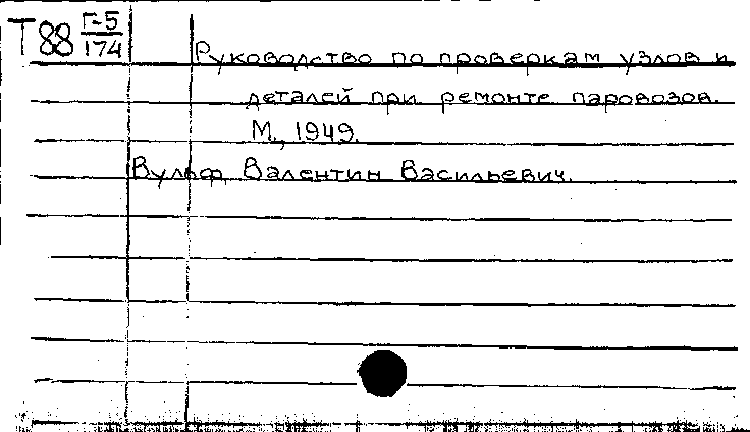 Т88 Г-5/174
Руководство по проверкам узлов и
деталей при ремонте паровозов.
М., 1949.
Вульф, Валентин Васильевич.